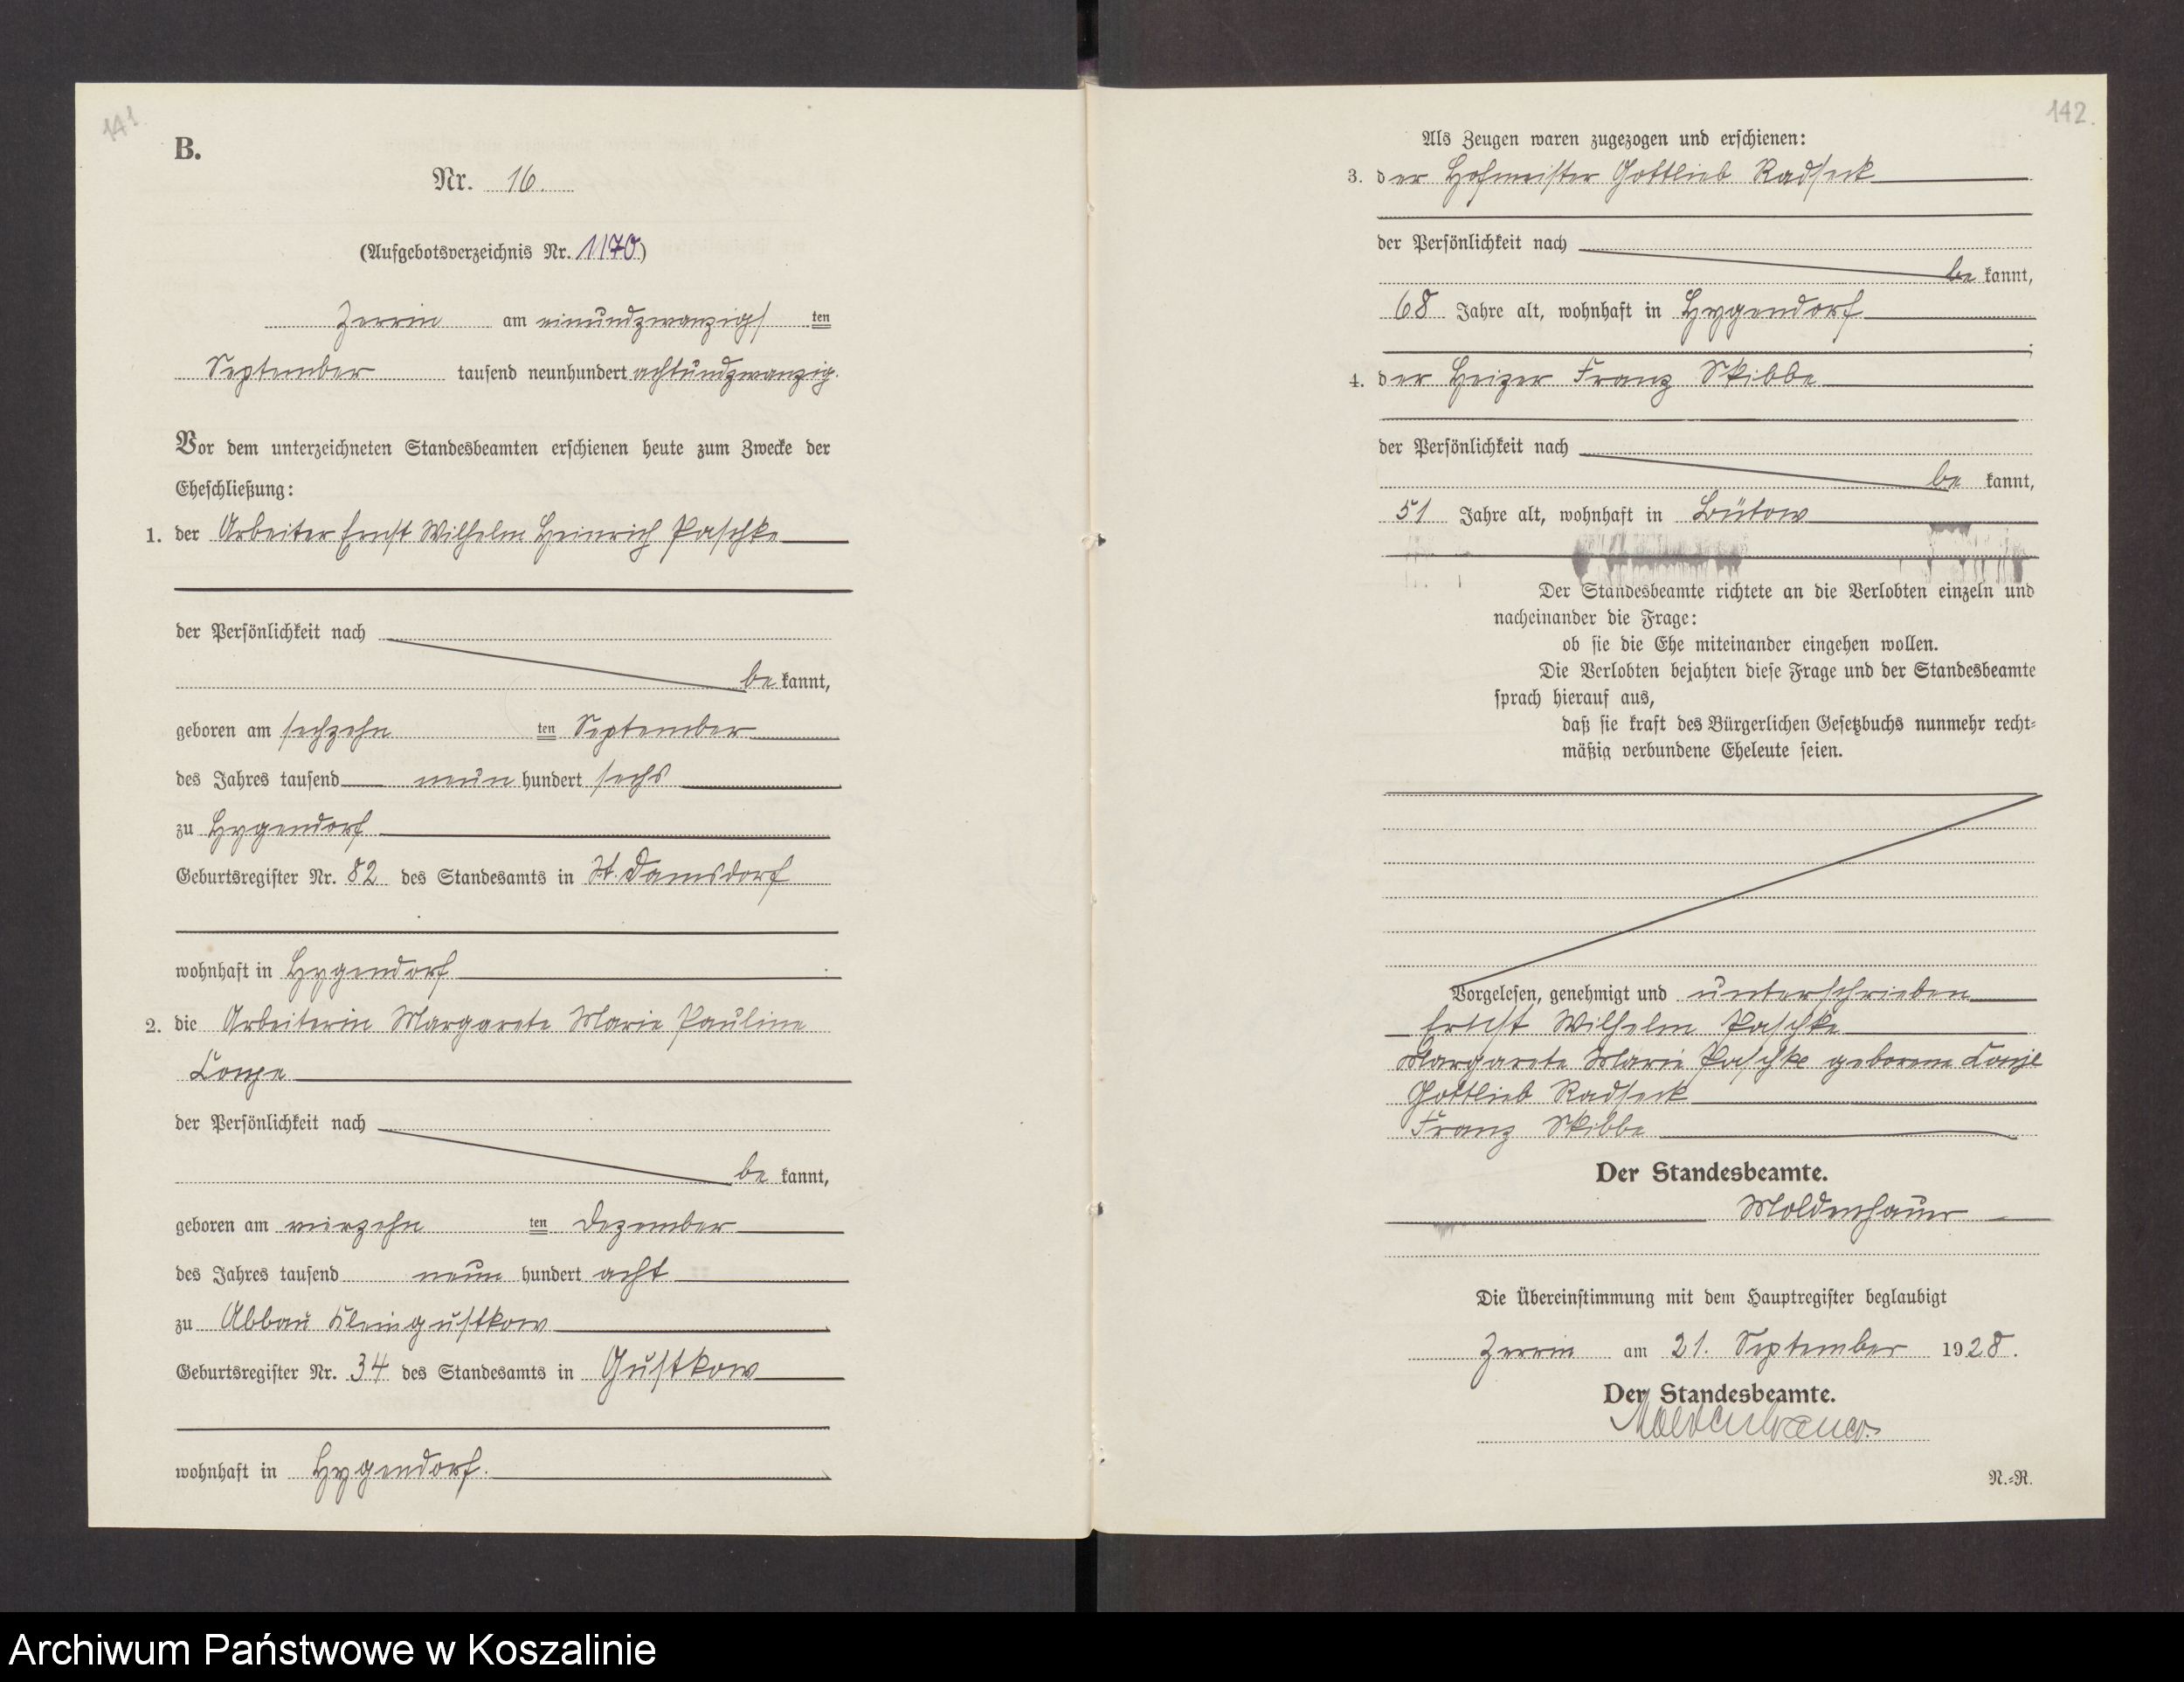 141
B.
Nr. 16.
(Aufgebotsverzeichnis Nr. 1170)
Zerrin am einundzwanzigsten
September tausend neunhundert achtundzwanzig.
Vor dem unterzeichneten Standesbeamten erschienen heute zum Zwecke der
Eheschließung:
1. der Arbeiter Ernst Wilhelm Heinrich Paschke
der Persönlichkeit nach
be kannt,
geboren am sechzehn ten September
des Jahres tausend neun hundert sechs
zu Hygendorf
Geburtsregister Nr. 82 des Standesamts in Gr. Damsdorf
wohnhaft in Hygendorf
2. die Arbeiterin Margarete Marie Pauline
Conje
der Persönlichkeit nach
be kannt,
geboren am vierzehn ten Dezember
des Jahres tausend neun hundert acht
zu Abbau Kleingustkow
Geburtsregister Nr. 34 des Standesamts in Gustkow
wohnhaft in Hygendorf.
142.
Als Zeugen waren zugezogen und erschienen:
3. der Hofmeister Gottlieb Radseck
der Persönlichkeit nach
be kannt,
68 Jahre alt, wohnhaft in Hygendorf
;
4. der Heizer Franz Skibbe
der Persönlichkeit nach
be kannt,
51 Jahre alt, wohnhaft in Bütow
Der Standesbeamte richtete an die Verlobten einzeln und
nacheinander die Frage:
ob sie die Ehe miteinander eingehen wollen.
Die Verlobten bejahten diese Frage und der Standesbeamte
sprach hierauf aus,
daß sie kraft des Bürgerlichen Gesetzbuchs nunmehr recht-
mäßig verbundene Eheleute seien.
Vorgelesen, genehmigt und unterschrieben
Ernst Wilhelm Paschke
Margarete Marie Paschke geborene Conje
Gottlieb Radseck
Franz Skibbe
Der Standesbeamte.
Moldenhauer
Die Übereinstimmung mit dem Hauptregister beglaubigt
Zerrin am 21. September 1928.
Der Standesbeamte.
Moldenhauer
N.-R.
Archiwum Państwowe w Koszalinie